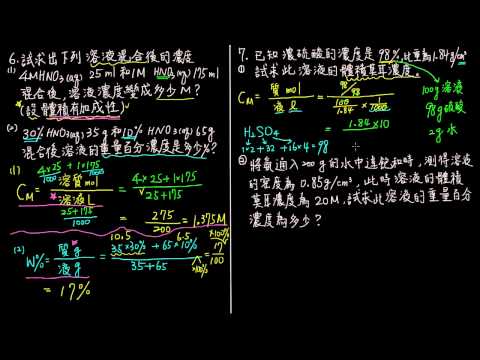 6. 試求出下列溶液混合後的濃度
(1) 4M HNO₃(aq) 25ml和1M HNO₃(aq) 175ml
混合後, 溶液濃度變成多少M?
(設體積有加成性)
(2) 30% HNO₃(aq) 35g和10% HNO₃(aq) 65g
混合後溶液的重量百分濃度是多少%?
(1) 4×25/1000 + 1×175/1000
C_M = 溶質mol/溶液L = (4×25+1×175)/(25+175)
(25+175)/1000
= 275/200 = 1.375M
10.5 6.5 ×100%
(2) W% = 質g/液g = (35×30%+65×10%)/(35+65) = 17/100
×100%
= 17%
7. 已知濃硫酸的濃度是98%, 比重為1.84g/cm³
① 試求此溶液的體積莫耳濃度。
C_M = 質mol/液L = (98/98)/(100/1.84×1/1000)
100g溶液
98g硫酸
2g水
= 1.84×10
H₂SO₄
1×2+32+16×4=98
② 將氨通入200g的水中達飽和時, 測得溶液
的密度為0.85g/cm³, 此時溶液的體積
莫耳濃度為20M, 試求此溶液的重量百分
濃度為多少?